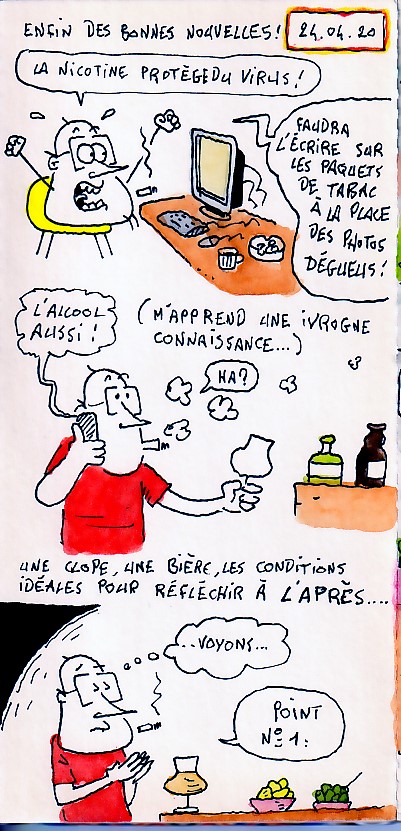 ENFIN DES BONNES NOUVELLES!
24.04.20
LA NICOTINE PROTÈGE DU VIRUS!
FAUDRA
L'ÉCRIRE SUR
LES PAQUETS
DE TABAC
À LA PLACE
DES PHOTOS
DÉGUEUS!
L'ALCOOL
AUSSI!
(M'APPREND UNE IVROGNE
CONNAISSANCE...)
HA?
UNE CLOPE, UNE BIÈRE, LES CONDITIONS
IDÉALES POUR RÉFLÉCHIR À L'APRÈS....
..VOYONS...
POINT
Nº1: